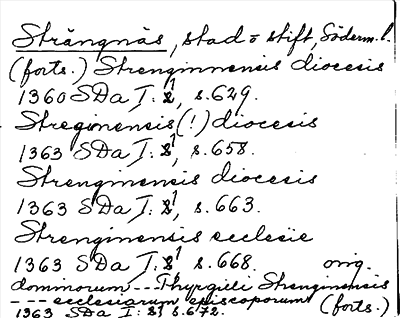 Strängnäs, stad o stift, Söderm. l.
(forts.) Strenginnensis diocesis
1360 SDa I: 1, s. 629.
Streginensis (!) diocesis
1363 SDa I: 1, s. 658.
Strenginensis diocesis
1363 SDa I: 1, s. 663.
Strenginensis ecclesie
1363 SDa I: 1 s. 668. orig.
dominorum --- Thyrgilli Strenginensis
--- ecclesiarum episcoporum (forts.)
1363 SDa I: 1 s. 672.